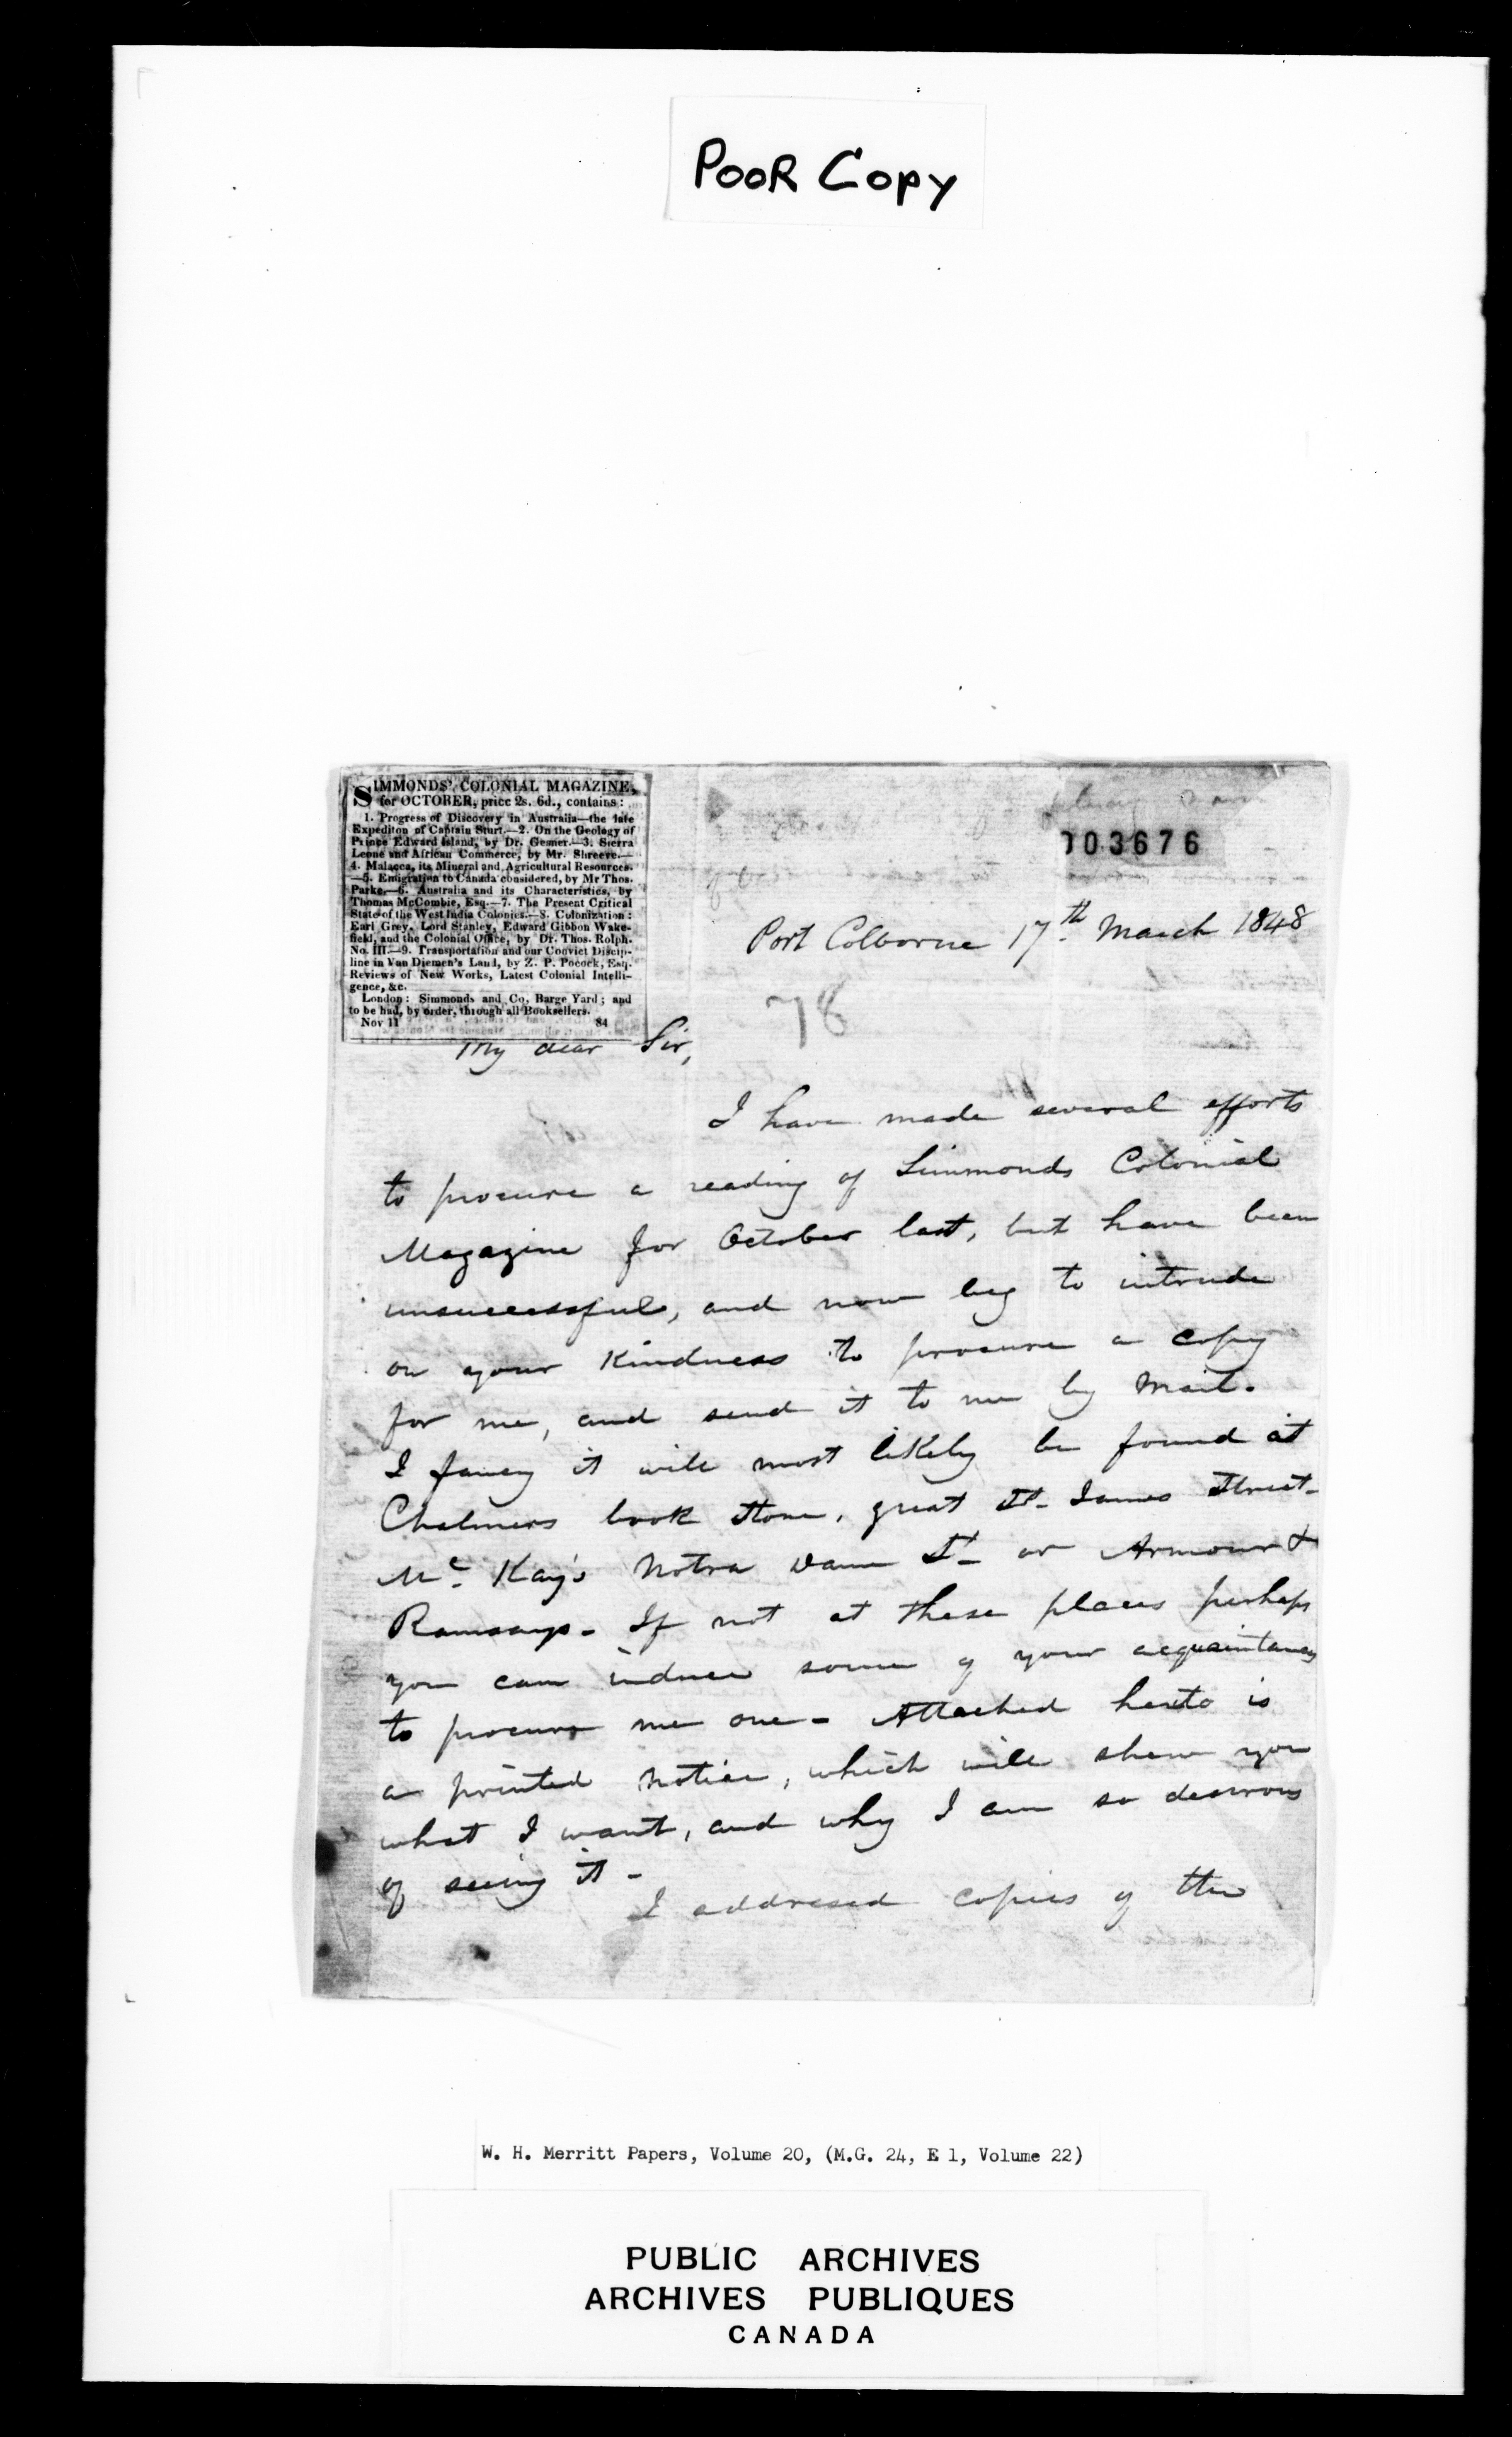 POOR COPY
SIMMONDS' COLONIAL MAGAZINE,
for OCTOBER, price 2s. 6d., contains:
1. Progress of Discovery in Australia—the late
Expediton of Captain Sturt.—2. On the Geology of
Prince Edward Island, by Dr. Gesner.—3. Sierra
Leone and African Commerce, by Mr. Shreeve.—
4. Malacca, its Mineral and Agricultural Resources.
—5. Emigration to Canada considered, by Mr Thos.
Parke.—6. Australia and its Characteristics, by
Thomas McCombie, Esq.—7. The Present Critical
State of the West India Colonies.—8. Colonization:
Earl Grey, Lord Stanley, Edward Gibbon Wake-
field, and the Colonial Office, by Dr. Thos. Rolph.
No. III.—9. Transportation and our Convict Discip-
line in Van Diemen's Land, by Z. P. Pocock, Esq.
Reviews of New Works, Latest Colonial Intelli-
gence, &c.
London: Simmonds and Co, Barge Yard; and
to be had, by order, through all Booksellers.
Nov 11 84
003676
Port Colborne 17th March 1848
78
My dear Sir,
I have made several efforts
to procure a reading of Simmonds Colonial
Magazine for October last, but have been
unsuccessful, and now beg to intrude
on your Kindness to procure a copy
for me, and send it to me by Mail.
I fancy it will most likely be found at
Chalmers book Store, great St. James Street-
Mc. Kay's Notra Dame St- or Armour &
Ramsays - If not at these places perhaps
you can induce some of your acquaintances
to procure me one - Attached herto is
a printed notice, which will shew you
what I want, and why I am so desirous
of seeing it -
I addressed copies of the
W. H. Merritt Papers, Volume 20, (M.G. 24, E 1, Volume 22)
PUBLIC ARCHIVES
ARCHIVES PUBLIQUES
CANADA